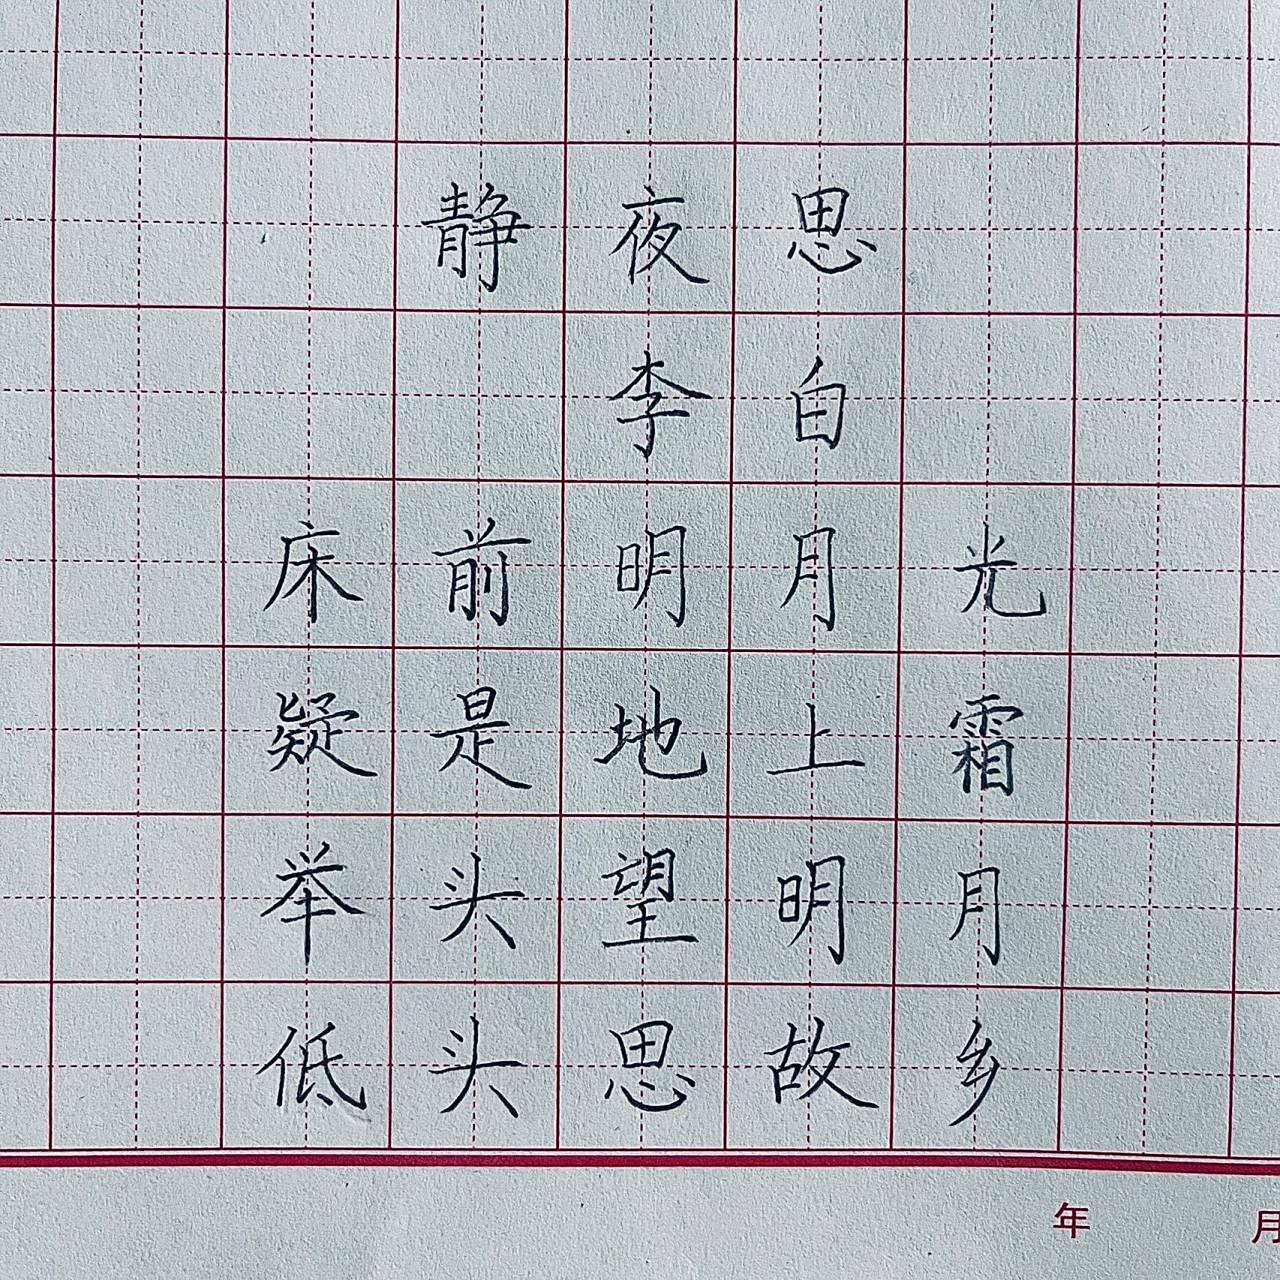 静夜思
李白
床前明月光
疑是地上霜
举头望明月
低头思故乡
年 月